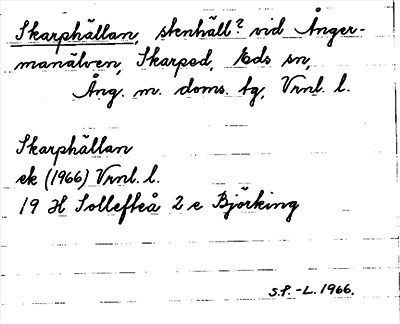 Skarphällan, stenhäll? vid Ånger-
manälven, Skarped, Eds sn,
Ång. m. doms. tg, Vrnl. l.
Skarphällan
ek (1966) Vrnl. l.
19 H Sollefteå 2 e Björking
S.F.-L. 1966.